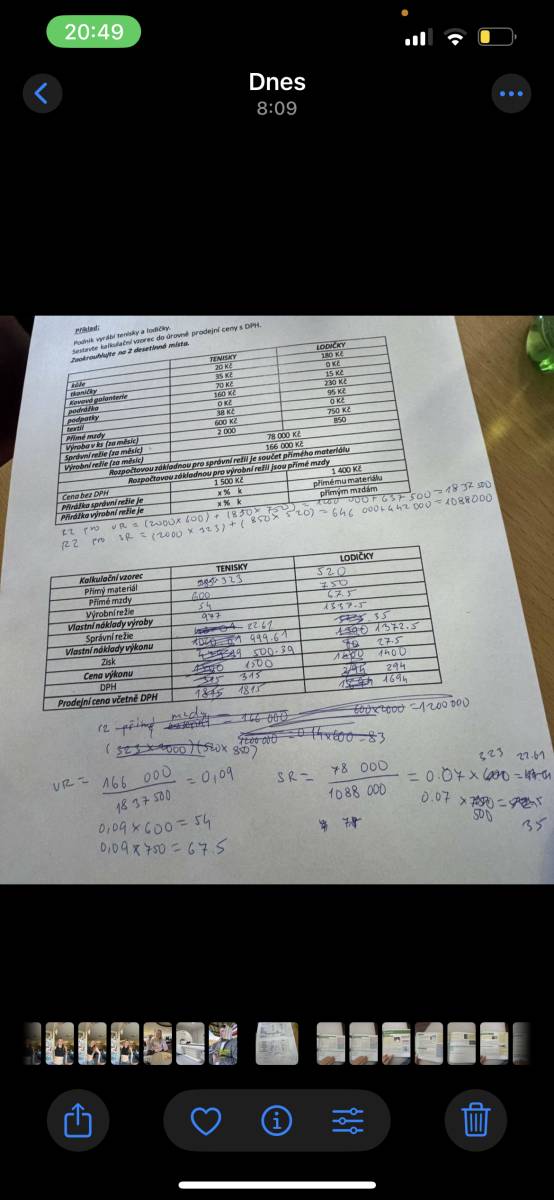 20:49
Dnes
8:09
Příklad:
Podnik vyrábí tenisky a lodičky.
Sestavte kalkulační vzorec do úrovně prodejní ceny s DPH.
Zaokrouhlujte na 2 desetinná místa.
TENISKY LODIČKY
kůže 20 Kč 180 Kč
tkaničky 35 Kč 0 Kč
Kovová galanterie 70 Kč 15 Kč
podrážka 160 Kč 230 Kč
podpatky 0 Kč 95 Kč
textil 38 Kč 0 Kč
Přímé mzdy 600 Kč 750 Kč
Výroba v ks (za měsíc) 2 000 850
Správní režie (za měsíc) 78 000 Kč
Výrobní režie (za měsíc) 166 000 Kč
Rozpočtovou základnou pro správní režii je součet přímého materiálu
Rozpočtovou základnou pro výrobní režii jsou přímé mzdy
Cena bez DPH 1 500 Kč 1 400 Kč
Přirážka správní režie je x % k přímému materiálu
Přirážka výrobní režie je x % k přímým mzdám
RZ pro VR = (2000 x 600) + (850 x 750) = 1200 000 + 637 500 = 1837 500
RZ pro SR = (2000 x 323) + (850 x 520) = 646 000 + 442 000 = 1088000
Kalkulační vzorec TENISKY LODIČKY
Přímý materiál 323 520
Přímé mzdy 600 750
Výrobní režie 54 67.5
Vlastní náklady výroby 977 1337.5
Správní režie 22.61 35
Vlastní náklady výkonu 999.61 1372.5
Zisk 500.39 27.5
Cena výkonu 1500 1400
DPH 315 294
Prodejní cena včetně DPH 1815 1694
rz přímý mzdy = 166 000 600x2000 = 1200 000
(323 x 2000) (520 x 850)
VR = 166 000 / 1837 500 = 0,09 SR = 78 000 / 1088 000 = 0.07 x 323 = 22.61
0,09 x 600 = 54 0.07 x 500 = 35
0,09 x 750 = 67.5